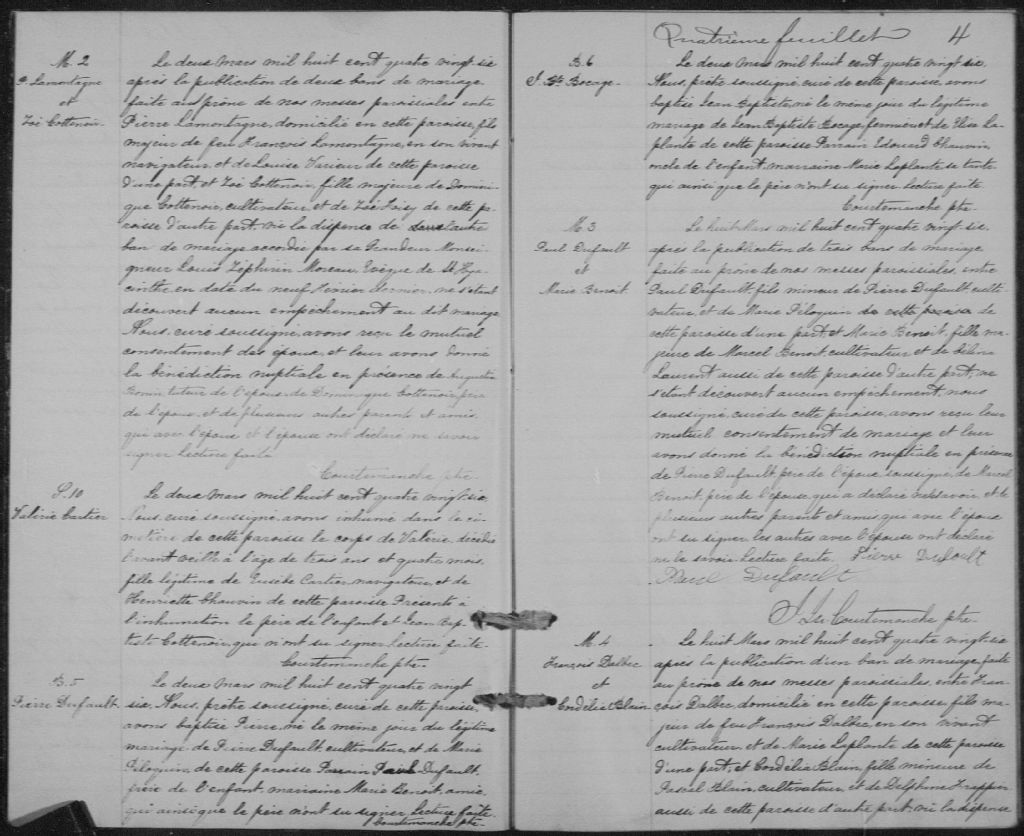 M. 2
P. Lamontagne
et
Zoé Cottenoir.
Le deux Mars mil huit cent quatre vingt six
après la publication de deux bans de mariage
faite au prône de nos messes paroissiales entre
Pierre Lamontagne, domicilié en cette paroisse, fils
majeur de feu François Lamontagne, en son vivant
navigateur, et de Louise de cette paroisse
d'une part, et Zoé Cottenoir, fille majeure de Domini-
que Cottenoir, cultivateur, et de Zoé de cette pa-
roisse d'autre part, vu la dispense de l'autre
ban de mariage accordée par sa Grandeur Monsei-
gneur Louis Zéphirin Moreau, Evêque de St Hya-
cinthe, en date du neuf Février dernier, ne s'étant
découvert aucun empêchement au dit mariage
Nous, curé soussigné, avons reçu le mutuel
consentement des époux, et leur avons donné
la bénédiction nuptiale en présence de Augustin
tuteur de l'époux, de Dominique Cottenoir, père
de l'épouse, et de plusieurs autres parents et amis,
qui avec l'époux et l'épouse ont déclaré ne savoir
signer. Lecture faite
Courtemanche ptre.
S. 10
Valérie Cartier
Le deux Mars mil huit cent quatre vingt six.
Nous, curé soussigné, avons inhumé dans le ci-
metière de cette paroisse le corps de Valérie, décédée
l'avant veille à l'âge de trois ans et quatre mois,
fille légitime de Eusèbe Cartier, navigateur, et de
Henriette Chauvin de cette paroisse Présents à
l'inhumation le père de l'enfant et Jean Bap-
tiste Cottenoir, qui n'ont su signer. Lecture faite
Courtemanche ptre.
B. 5
Pierre Dufault.
Le deux Mars mil huit cent quatre vingt
six. Nous, prêtre soussigné, curé de cette paroisse,
avons baptisé Pierre, né le même jour du légitime
mariage de Pierre Dufault, cultivateur, et de Marie
Péloquin, de cette paroisse Parrain Paul Dufault,
frère de l'enfant, marraine Marie Benoit, amie,
qui ainsi que le père n'ont su signer. Lecture faite.
Courtemanche ptre.
Quatrième feuillet 4
B. 6
J. Bte Bocage.
Le deux Mars mil huit cent quatre vingt six.
Nous, prêtre soussigné, curé de cette paroisse, avons
baptisé Jean Baptiste, né le même jour du légitime
mariage de Jean Baptiste Bocage, fermier, et de Elise La-
plante de cette paroisse Parrain Edouard Chauvin
oncle de l'enfant, marraine Marie Laplante sa tante
qui ainsi que le père n'ont su signer. Lecture faite
Courtemanche ptre.
M. 3
Paul Dufault
et
Marie Benoit.
Le huit Mars mil huit cent quatre vingt six,
après la publication de trois bans de mariage
faite au prône de nos messes paroissiales, entre
Paul Dufault, fils mineur de Pierre Dufault, culti-
vateur, et de Marie Péloquin de cette paroisse de
cette paroisse d'une part, et Marie Benoit, fille ma-
jeure de Marcel Benoit, cultivateur, et de Célina
Laurent aussi de cette paroisse d'autre part, ne
s'étant découvert aucun empêchement, nous
soussigné, curé de cette paroisse, avons reçu leur
mutuel consentement de mariage et leur
avons donné la bénédiction nuptiale en présence
de Pierre Dufault, père de l'époux soussigné, de Marcel
Benoit, père de l'épouse, qui a déclaré ne le savoir, et de
plusieurs autres parents et amis, qui avec l'époux
ont su signer, les autres avec l'épouse ont déclaré
ne le savoir. Lecture faite Pierre Dufault
Paul Dufault
Courtemanche ptre.
M. 4
François Dalbec
et
Cordélia Blain.
Le huit Mars mil huit cent quatre vingt six
après la publication d'un ban de mariage, faite
au prône de nos messes paroissiales, entre Fran-
çois Dalbec, domicilié en cette paroisse, fils ma-
jeur de feu François Dalbec, en son vivant
cultivateur, et de Marie Laplante de cette paroisse
d'une part, et Cordélia Blain, fille mineure de
Pascal Blain, cultivateur, et de Delphine
aussi de cette paroisse d'autre part, vu la dispense